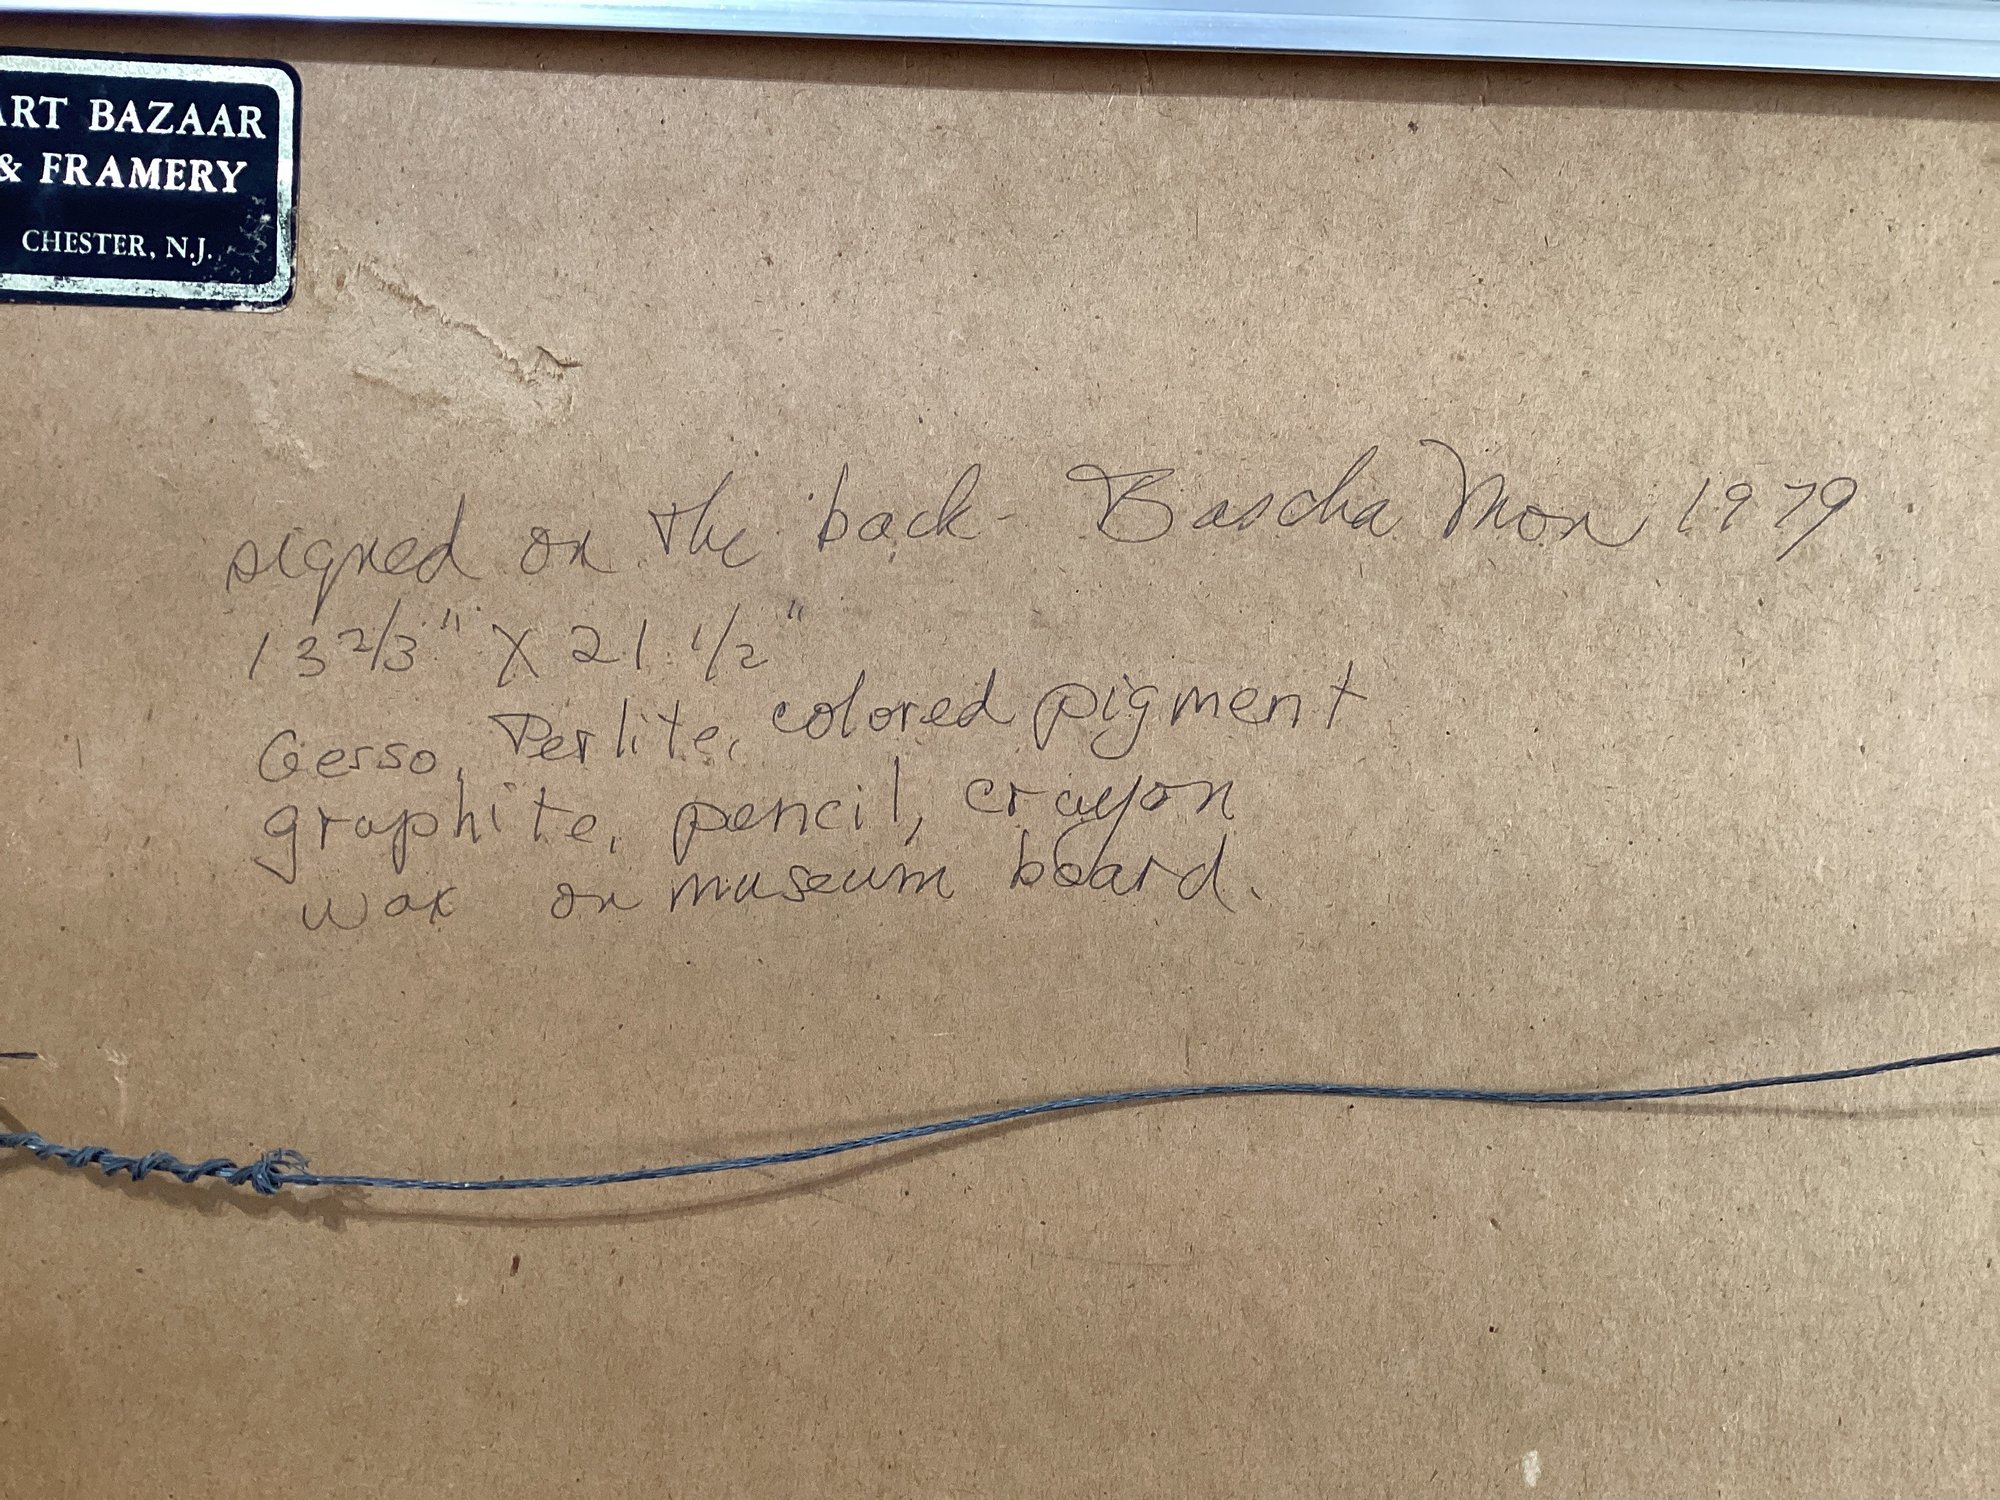 ART BAZAAR
& FRAMERY
CHESTER, N.J.
signed on the back - Bascha Mon 1979
13 2/3" X 21 1/2"
Gesso, Perlite, colored pigment
graphite, pencil, crayon
wax on museum board.